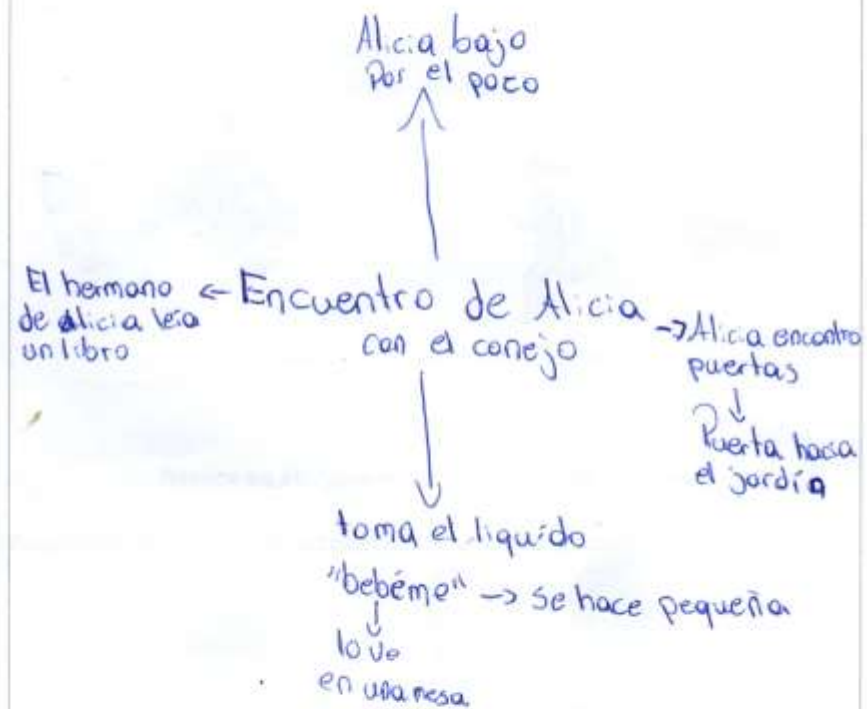 Alicia bajo
Por el pozo
El hermano
de Alicia leia
un libro
← Encuentro de Alicia
con el conejo
→ Alicia encontro
puertas
↓
Puerta hacia
el jardín
toma el liquído
"bebéme" → Se hace pequeña
↓
lo ve
en una mesa